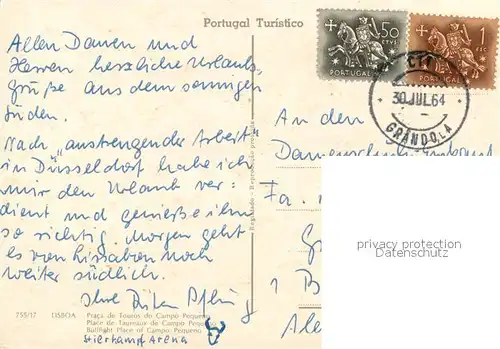 Portugal Turístico
Allen Damen und
Herren herzliche Urlaubs-
grüße aus dem sonnigen
Süden.
Nach "anstrengender Arbeit"
in Düsseldorf habe ich
mir den Urlaub ver-
dient und genieße ihn
so richtig. Morgen geht
es von Lissabon noch
weiter südlich.
Ihre
755/17 LISBOA Praça de Touros do Campo Pequeno
Place de Taureaux de Campo Pequeno
Bullfight Place of Campo Pequeno
Stierkampf Arena
50
CTVS.
PORTUGAL
1
ESC.
PORTUGAL
30 JUL 64
GRÂNDOLA
An den
Fa.
1 B
privacy protection
Datenschutz